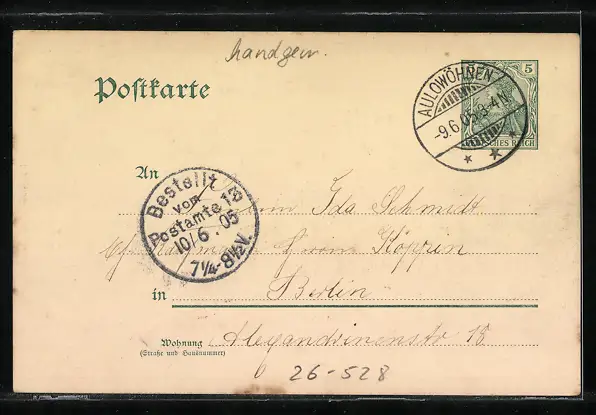 handgem.
Postkarte
5
DEUTSCHES REICH
AULOWÖHNEN
-9.6.05.3-4N.
An
Bestellt
vom
Postamte 13
10/6.05
7¼-8½V.
Ida Schmidt
Köppin
in Berlin
Wohnung Alexandrinenstr 18
(Straße und Hausnummer)
26-528